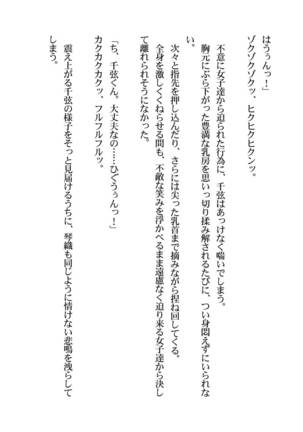 はうぅんっ！」
ゾクゾクゾクッ、ヒクヒクヒクンッ。
　不意に女子達から迫られた行為に、千弦はあっけなく喘いでしまう。
　胸元にぶら下がった豊満な乳房を思いっ切り揉み解されるたびに、つい身悶えずにいられな
い。
　次々と指先を押し込んだり、さらには尖った乳首まで摘みながら捏ね回してくる。
　全身を激しくくねらせる間も、不敵な笑みを浮かべるまま遠慮なく迫り来る女子達から決し
て離れられそうになかった。
「ち、千弦くん。大丈夫なの……ひぐうぅんっ！」
カクカクカクッ、フルフルフルッ。
　震え上がる千弦の様子をそっと見届けるうちに、琴織も同じように情けない悲鳴を洩らして
しまう。